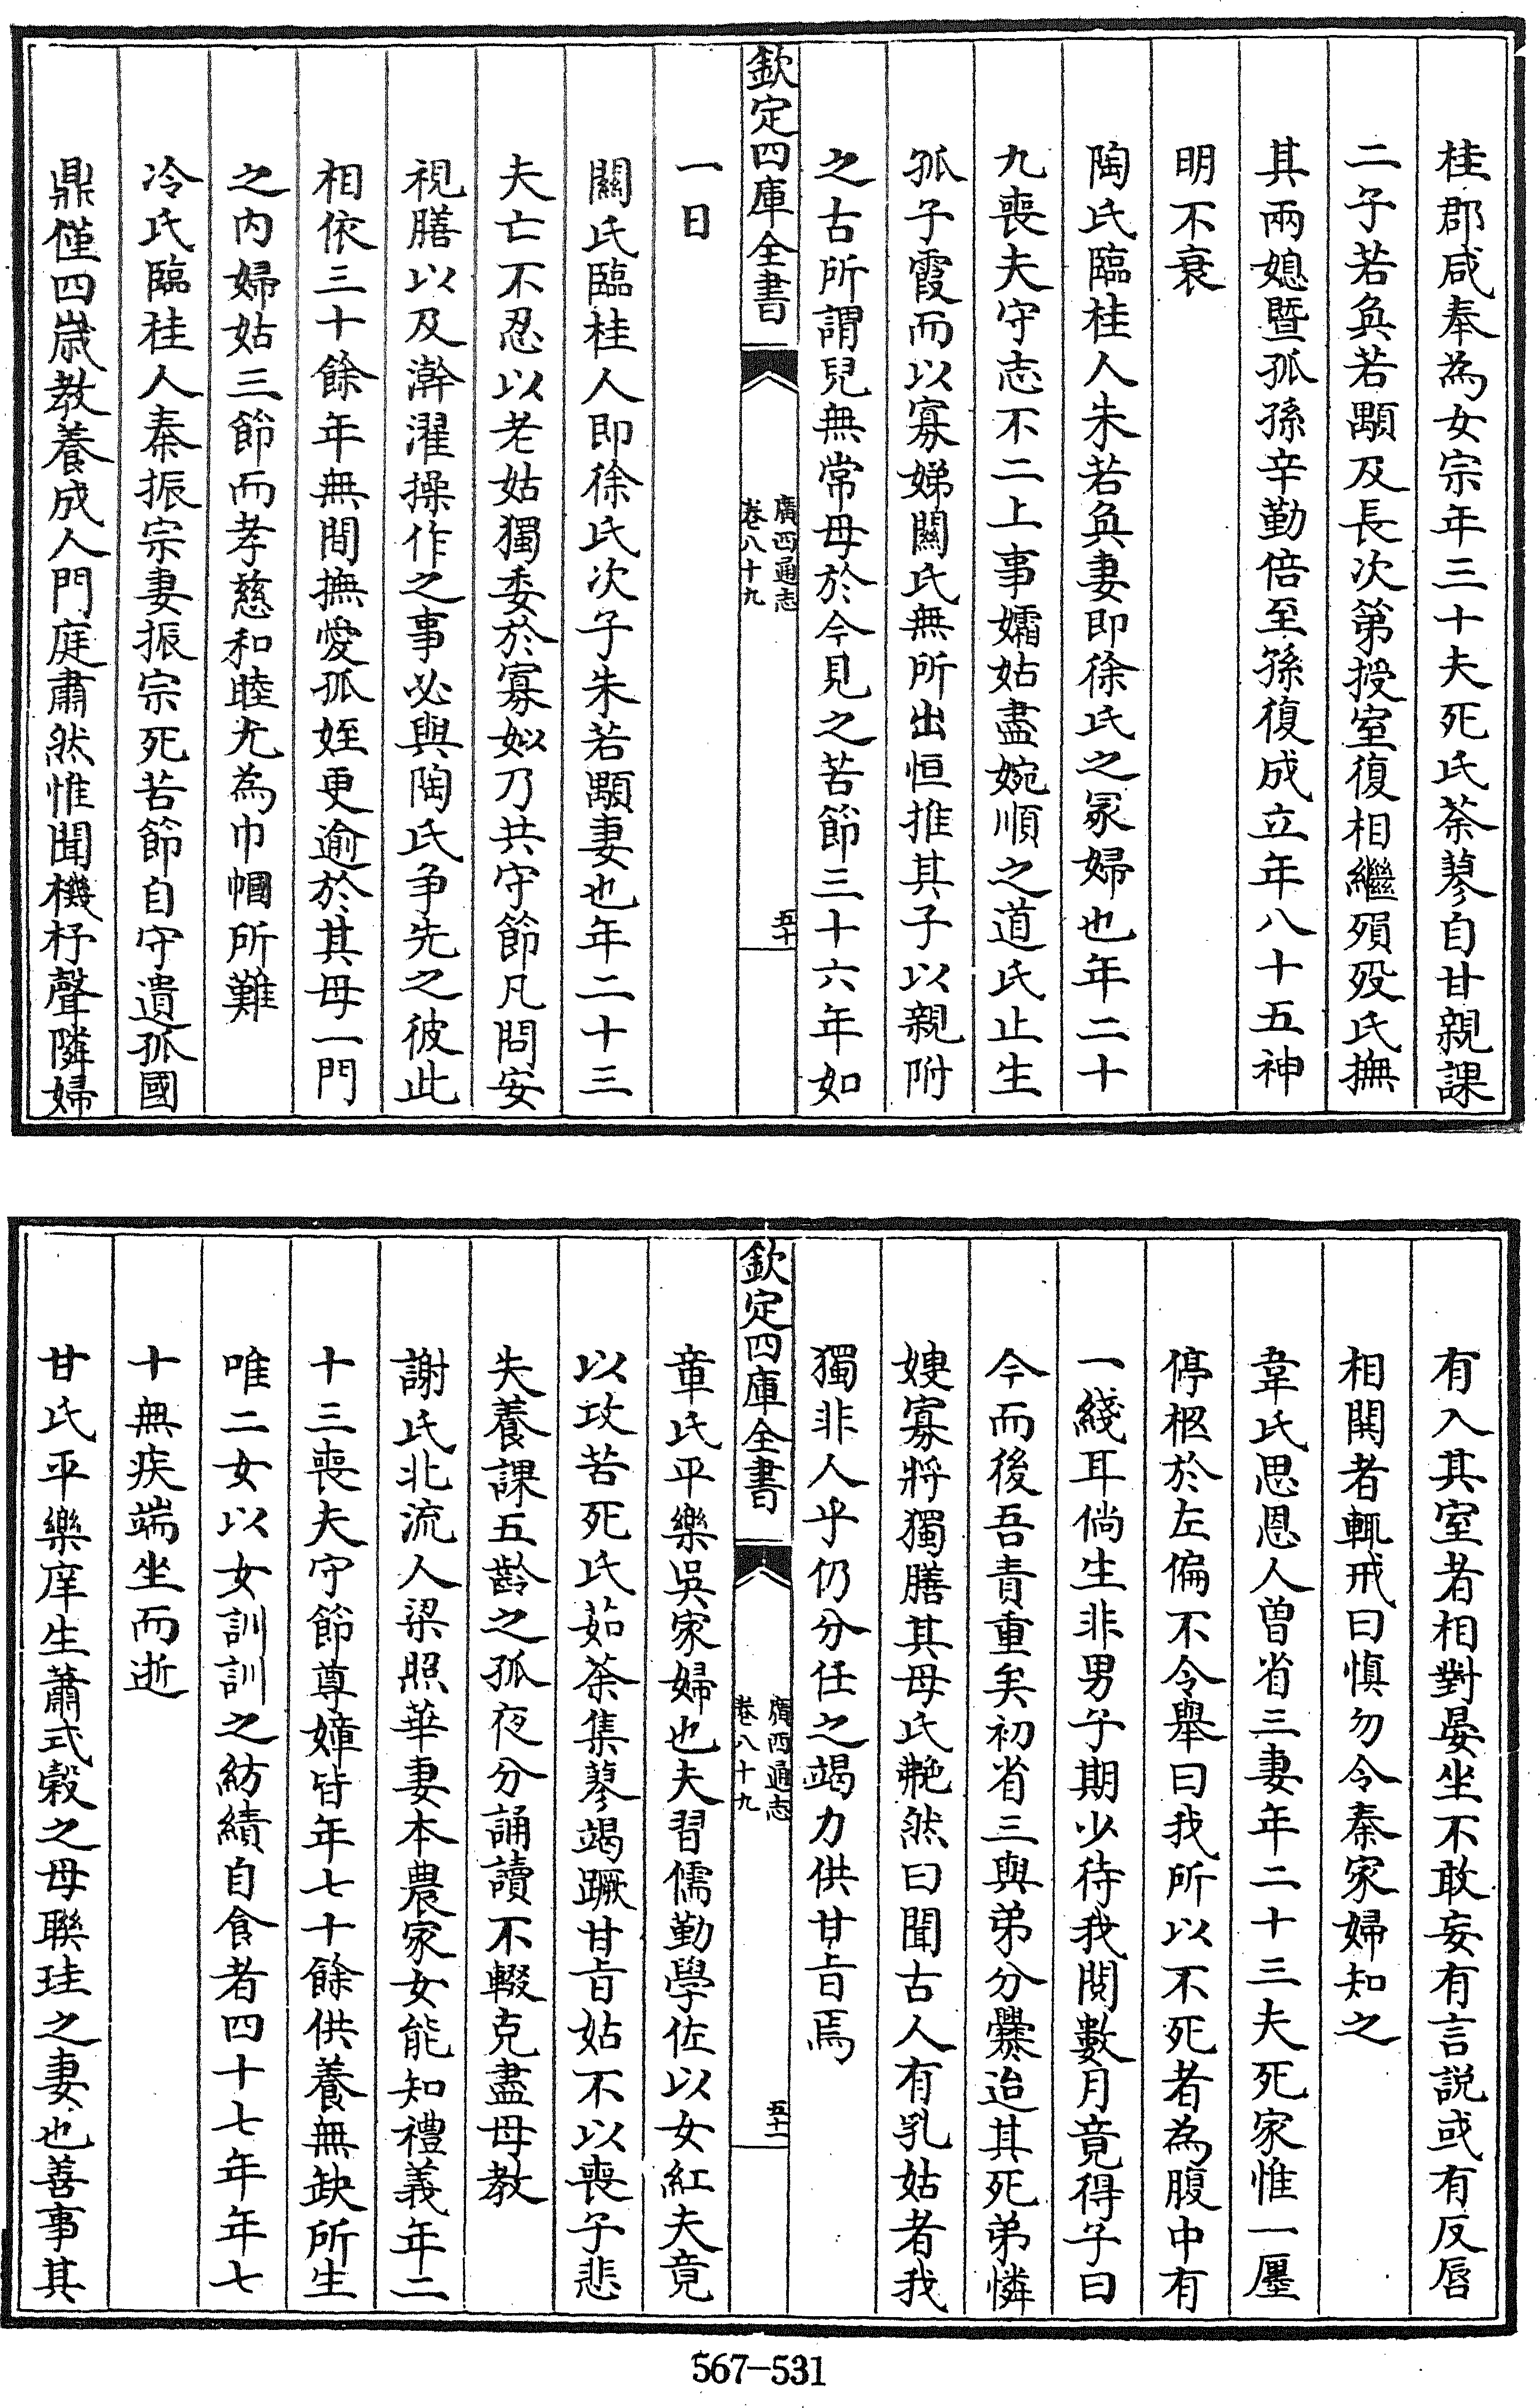 桂郡咸奉為女宗年三十夫死氏荼蓼自甘親課
二子若奐若顒及長次第授室復相繼殞歿氏撫
其兩媳曁孤孫辛勤倍至孫復成立年八十五神
明不衰
陶氏臨桂人朱若奐妻即徐氏之冡婦也年二十
九喪夫守志不二上事孀姑盡婉順之道氏止生
孤子霞而以寡娣關氏無所出恒推其子以親附
之古所謂兒無常母於今見之苦節三十六年如
欽定四庫全書
廣西通志
卷八十九
五十
一日
關氏臨桂人即徐氏次子朱若顒妻也年二十三
夫亡不忍以老姑獨委於寡姒乃共守節凡問安
視膳以及澣濯操作之事必與陶氏争先之彼此
相依三十餘年無間撫愛孤姪更逾於其母一門
之内婦姑三節而孝慈和睦尤為巾幗所難
冷氏臨桂人秦振宗妻振宗死苦節自守遺孤國
鼎僅四歲教養成人門庭肅然惟聞機杼聲隣婦
有入其室者相對晏坐不敢妄有言説或有反唇
相閧者輒戒曰慎勿令秦家婦知之
韋氏思恩人曾省三妻年二十三夫死家惟一㕓
停柩於左偏不令舉曰我所以不死者為腹中有
一綫耳倘生非男子期以待我閲數月竟得子曰
今而後吾責重矣初省三與弟分爨迨其死弟憐
嫂寡將獨膳其母氏艴然曰聞古人有乳姑者我
獨非人乎仍分任之竭力供甘旨焉
欽定四庫全書
廣西通志
卷八十九
五十一
章氏平樂吳家婦也夫習儒勤學佐以女紅夫竟
以攻苦死氏茹荼集蓼竭蹶甘旨姑不以喪子悲
失養課五齡之孤夜分誦讀不輟克盡母教
謝氏北流人梁照華妻本農家女能知禮義年二
十三喪夫守節尊嫜皆年七十餘供養無缺所生
唯二女以女訓訓之紡績自食者四十七年年七
十無疾端坐而逝
甘氏平樂庠生蕭式穀之母聯珪之妻也善事其
567—531